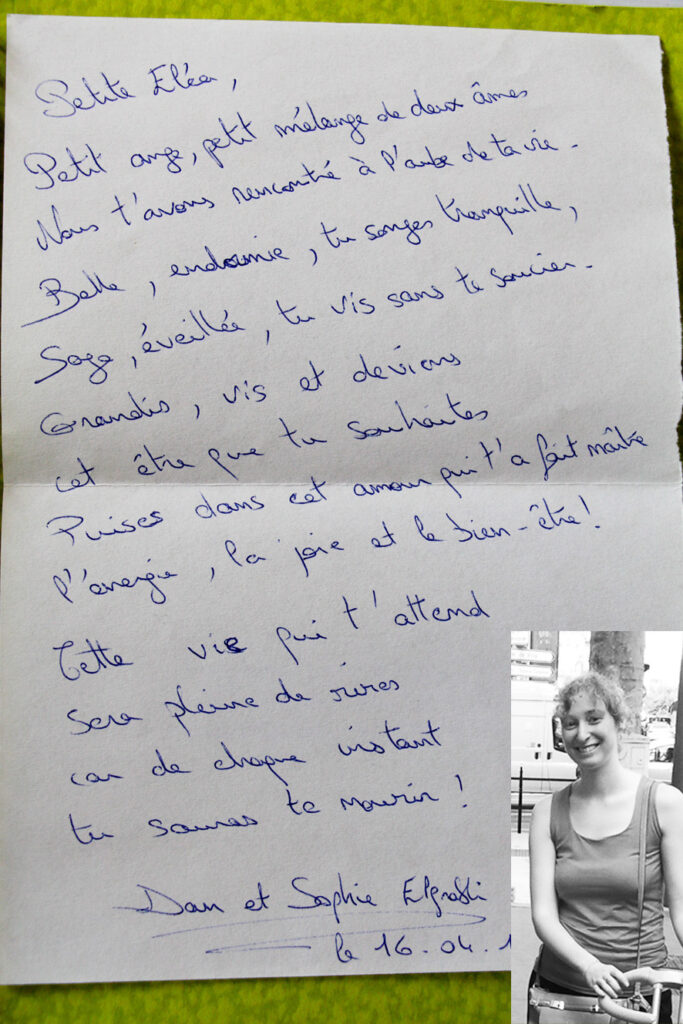 Petite Eléa,
Petit ange, petit mélange de deux âmes
Nous t'avons rencontré à l'aube de ta vie.
Belle, endormie, tu songes tranquille,
Sage, éveillée, tu vis sans te soucier.
Grandis, vis et deviens
cet être que tu souhaites
Puises dans cet amour qui t'a fait naître
l'énergie, la joie et le bien-être!
Cette vie qui t'attend
sera pleine de rires
car de chaque instant
tu sauras te nourrir!
Dan et Sophie
le 16.04.1